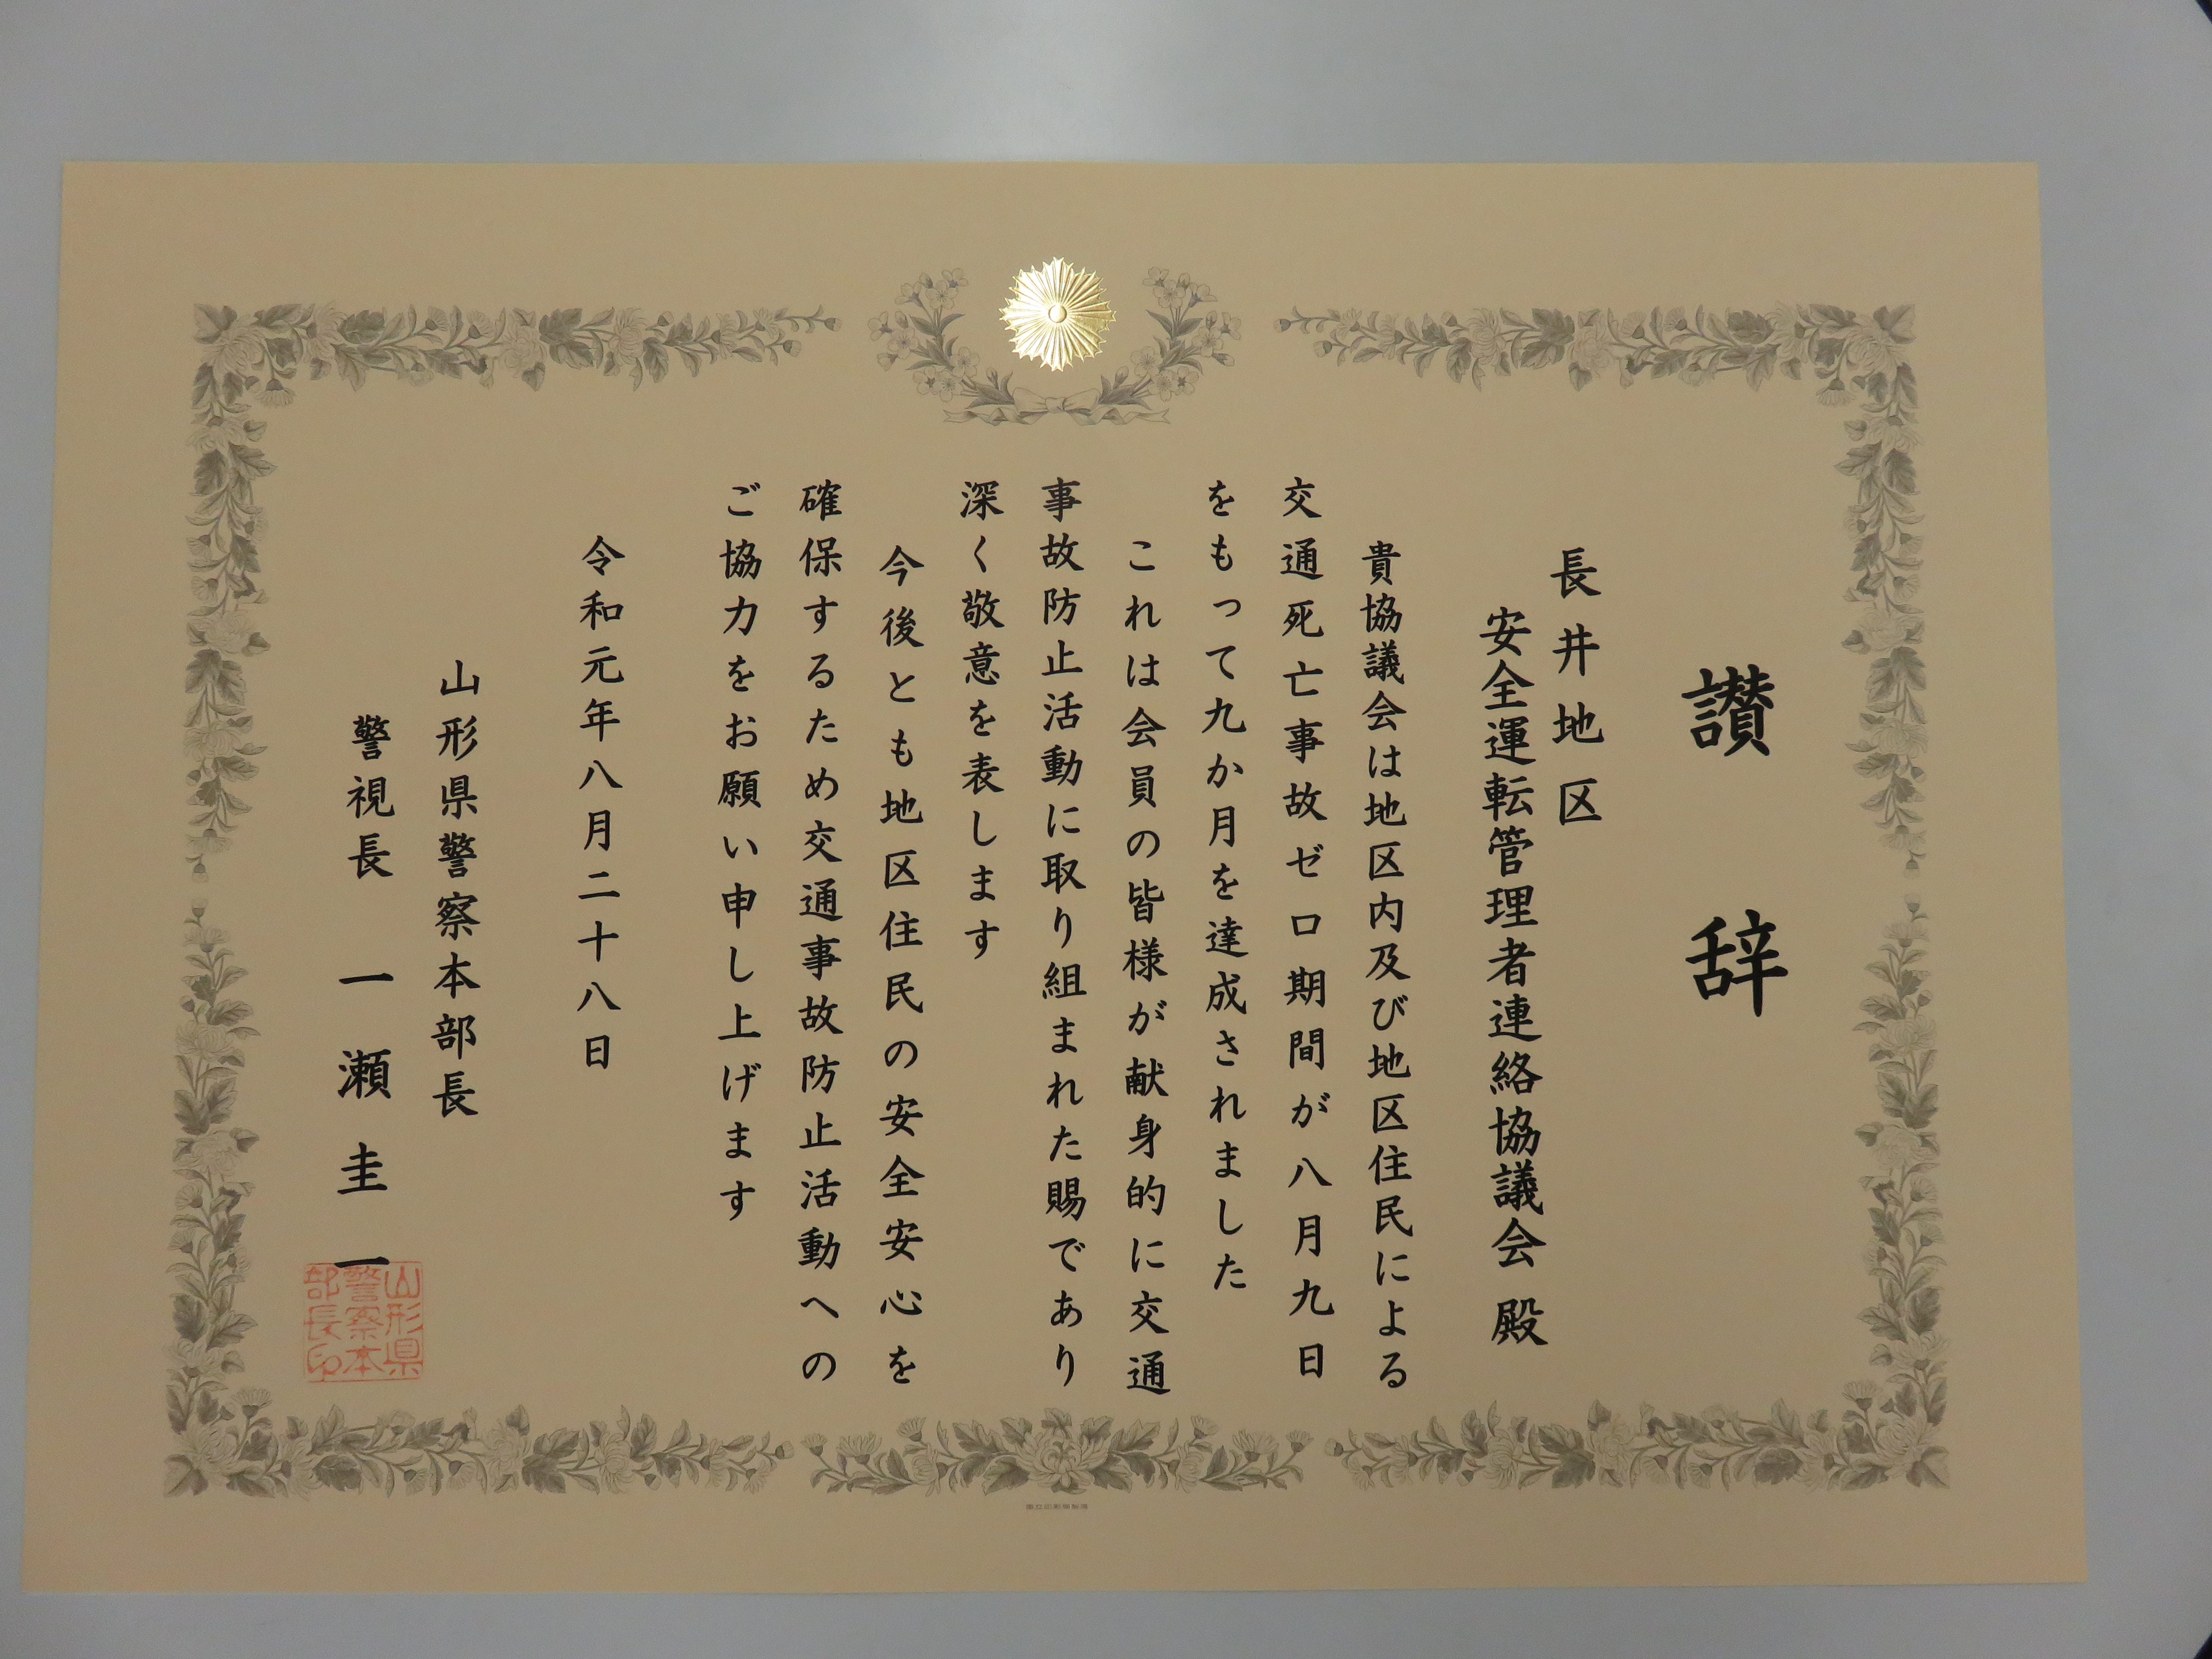 讃辞
長井地区
安全運転管理者連絡協議会 殿
貴協議会は地区内及び地区住民による
交通死亡事故ゼロ期間が八月九日
をもって九か月を達成されました
これは会員の皆様が献身的に交通
事故防止活動に取り組まれた賜であり
深く敬意を表します
今後とも地区住民の安全安心を
確保するため交通事故防止活動への
ご協力をお願い申し上げます
令和元年八月二十八日
山形県警察本部長
警視長 一瀬圭一
山形県
警察本
部長印